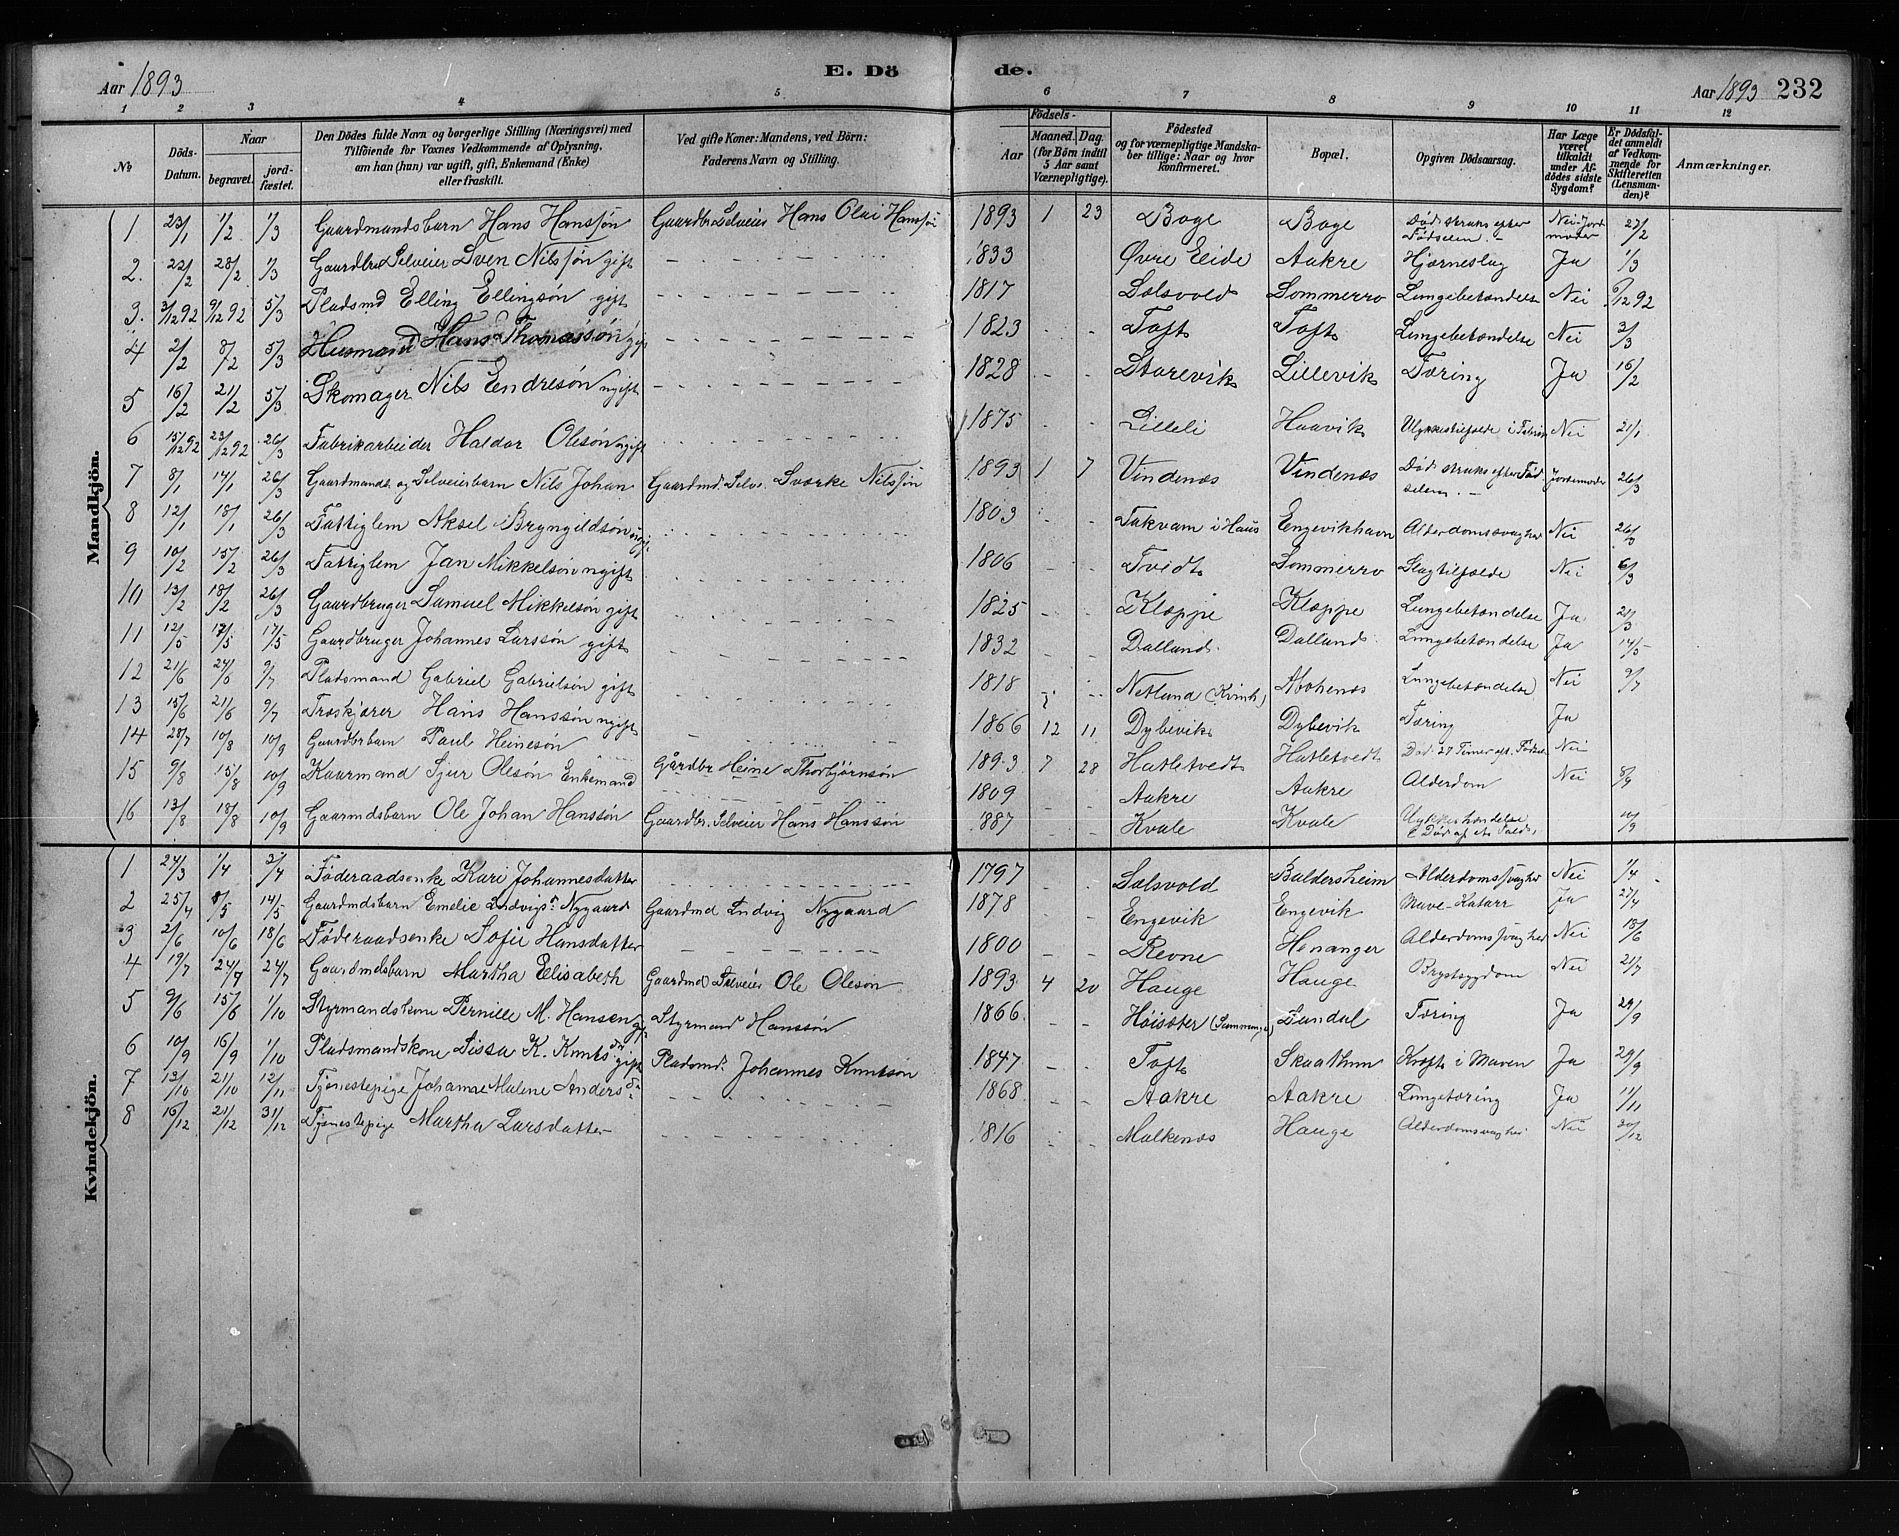 Aar 1893. E. Dö de. Aar 1893 232
1 2 3 4 5 6 7 8 9 10 11 12
№ Döds-Datum. Naar begravet. jord-fæstet. Den Dödes fulde Navn og borgerlige Stilling (Næringsvei) med Tilföiende for Voxnes Vedkommende af Oplysning, om han (hun) var ugift, gift, Enkemand (Enke) eller fraskilt. Ved gifte Koner: Mandens, ved Börn: Faderens Navn og Stilling. Födsels- Aar Maaned. Dag. (for Börn indtil 5 Aar samt Værnepligtige). Födested og for værnepligtige Mandskaber tillige: Naar og hvor konfirmeret. Bopæl. Opgiven Dödsaarsag. Har Læge været tilkaldt under Afdödes sidste Sygdom? Er Dödsfaldet anmeldt af Vedkommende for Skifteretten (Lensmanden)? Anmærkninger.
Mandkjön.
1 23/1 1/2 1/3 Gaardmandsbarn Hans Hanssøn Gaardbr. Selveier Hans Olai Hanssøn 1893 1 23 Boge Boge Død straks efter Fødselen. Nei Jordmoder 27/2
2. 22/2 28/2 1/3 Gaardbr. Selveier Sven Nilssøn gift 1833 Øvre Eide Aakre Hjerneslag Ja 1/3
3. 3/12 92 9/12 92 5/3 Pladsmd Elling Ellingsøn gift 1817 Salsvold Sommerro Lungebetændelse Nei 6/12 92
4 2/2 8/2 5/3 Husmand Hans Thomassøn gift 1823 Toft Toft Lungebetændelse Nei 3/3
5 16/2 21/2 5/3 Skomager Nils Endresøn ugift 1828 Storevik Lillevik Tæring Ja 16/2
6 15/12 92 23/12 92 26/3 Fabrikarbeider Haldor Olesøn ugift 1875 Lilleli Haavik Ulykkestilfælde i Fabrik Nei 21/1
7 8/1 14/1 26/3 Gaardmands og Selveierbarn Nils Johan Gaardmd. Selv. Sværke Nilssøn 1893 1 7 Vindenæs Vindenæs Død straks efter Fødselen. Jordemoder 26/3
8 12/1 18/1 26/3 Fattiglem Aksel Bryngildsøn 1803 Takvam i Haus Engevikhavn Alderdomssvaghed Nei 26/3
9 10/2 15/2 26/3 Fattiglem Jan Mikkelsøn ugift 1806 Tvidt Sommerro Slagtilfælde Nei 6/3
10 13/2 18/2 26/3 Gaardbruger Samuel Mikkelsøn gift 1825 Kleppe Kleppe Lungebetændelse Ja 21/3
11 12/5 17/5 17/5 Gaardbruger Johannes Larssøn gift 1832 Dalland Dalland Lungebetændelse Ja 14/5
12 21/6 24/6 9/7 Pladsmand Gabriel Gabrielsøn gift 1818 Netland (Kvinh.) Lungebetændelse Nei 9/7
13 15/6 21/6 9/7 Træskjærer Hans Hanssøn ugift 1866 12 11 Dybevik Dybevik Tæring Ja
14 28/7 10/8 10/9 Gaardbrbarn Paul Heinesøn Gårdbr Heine Thorbjørnsøn 1893 7 28 Hatletvedt Hatletvedt Død 27 Timer eft. Fødsel Nei
15 9/8 15/8 10/9 Kaarmand Sjur Olesøn Enkemand 1809 Aakre Aakre Alderdom Nei 8/9
16 13/8 18/8 10/9 Gaarmdsbarn Ole Johan Hanssøn Gaardbr. Selveier Hans Hanssøn 1887 Kvale Kvale Ulykkeshændelse Død af et Fald 10/9
Kvindekjön.
1 24/3 1/4 2/4 Føderaadsenke Kari Johannesdatter 1797 Salsvold Baldersheim Alderdomssvaghed Nei 1/4
2 25/4 8/5 14/5 Gaardmdsbarn Emelie Ludvigs Nygaard Gaardmd Ludvig Nygaard 1878 Engevik Engevik Mave-Katarr Ja 27/4
3 2/6 10/6 18/6 Føderaadsenke Sofie Hansdatter 1800 Revne Henanger Alderdomssvaghed Nei 18/6
4 19/7 24/7 24/7 Gaardmdsbarn Martha Elisabeth Gaardmd Selveier Ole Olesøn 1893 4 20 Hauge Hauge Brystsygdom Nei 21/7
5 9/6 15/6 1/10 Styrmandskone Pernille M. Hansen Styrmand Hanssøn 1866 Høisæter Sundal Tæring Ja 29/9
6 10/9 16/9 1/10 Pladsmandskone Sissa K. Knuts dr gift Pladsmd. Johannes Knutsøn 1847 Toft Skaathun Kræft i Maven Ja 29/9
7 13/10 21/10 12/11 Tjenestepige Johanne Malene Anders dr 1868 Aakre Aakre Lungetæring Ja 11/11
8 16/12 21/12 31/12 Tjenestepige Martha Larsdatter 1816 Malkenæs Hauge Alderdomssvaghed Nei 20/12